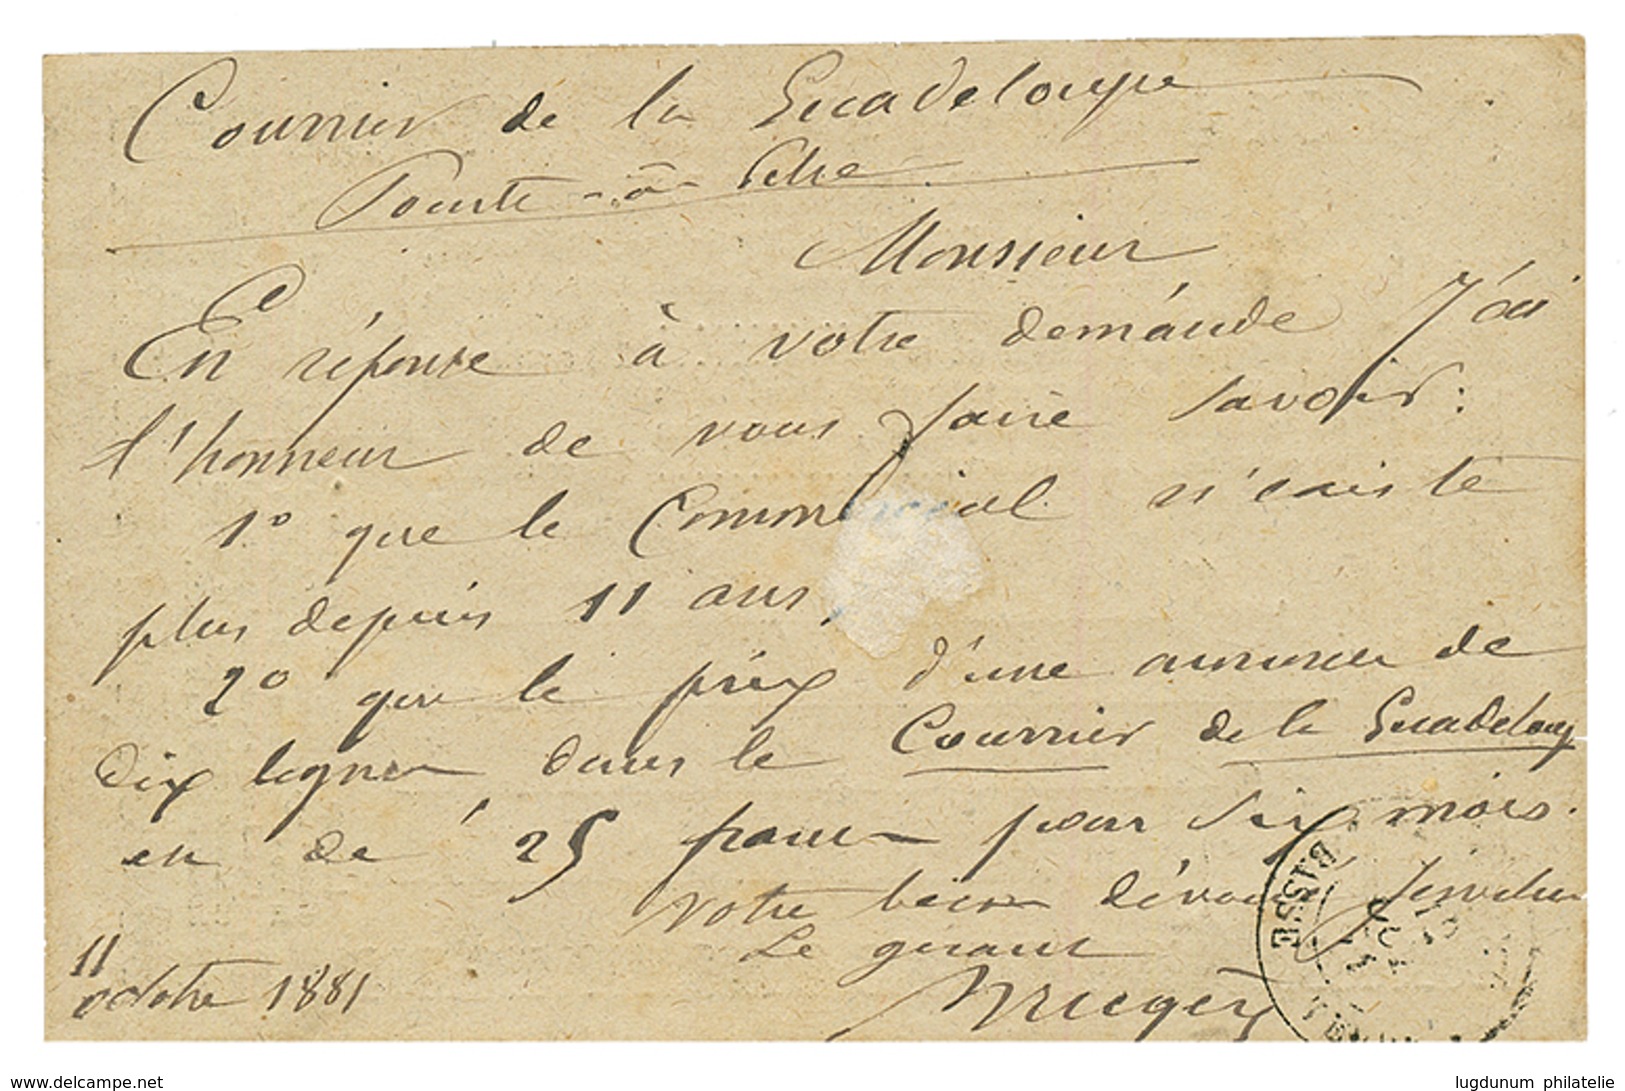 Courrier de la Guadeloupe
Pointe-à-Pitre
Monsieur
En réponse à votre demande j'ai
l'honneur de vous faire savoir:
1° que le Commercial n'existe
plus depuis 11 ans,
2° que le prix d'une annonce de
dix lignes dans le Courrier de la Guadeloupe
en de 25 francs pour six mois.
Votre bien dévoué serviteur
Le gérant
11
octobre 1881
BASSE
delcampe.net
lugdunum philatelie